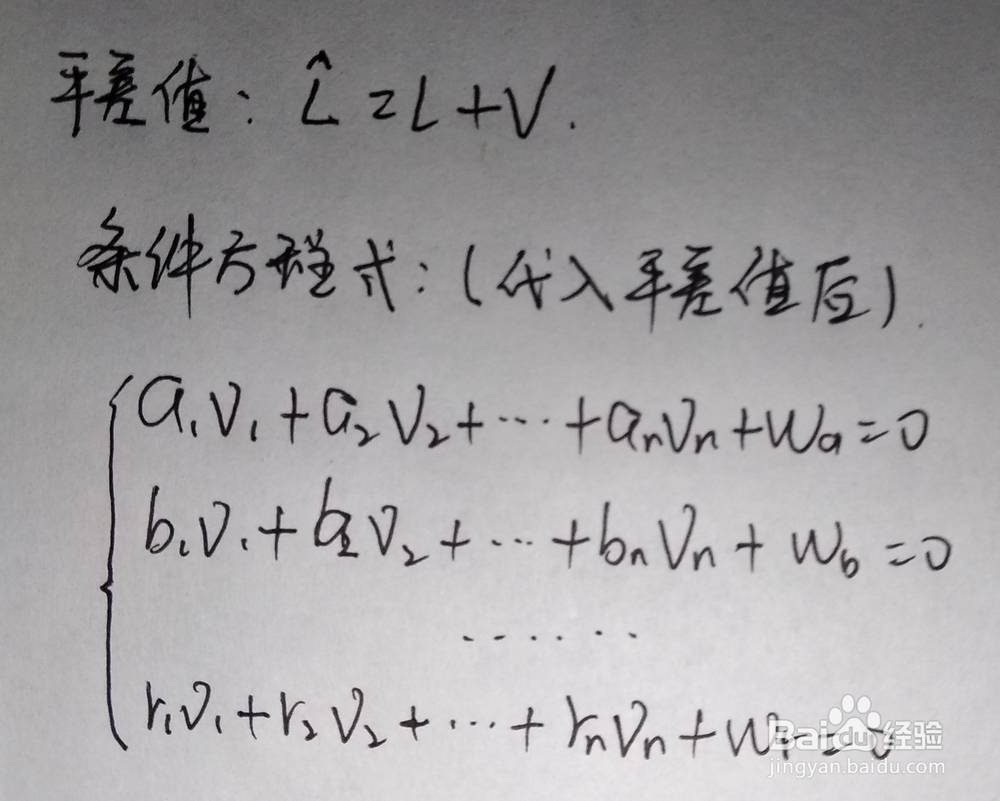 平差值: L̂=L+V.
条件方程式:(代入平差值后).
a₁v₁+a₂v₂+…+aₙvₙ+wₐ=0
b₁v₁+b₂v₂+…+bₙvₙ+w_b=0
······
r₁v₁+r₂v₂+…+rₙvₙ+wᵣ=0
Baidu经验
jingyan.baidu.com